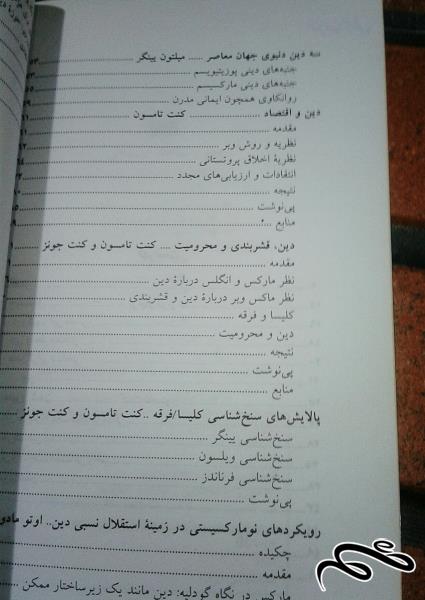 سه دین دنیوی جهان معاصر ..... میلتون یینگر
جنبه‌های دینی پوزیتیویسم
جنبه‌های دینی مارکسیسم
روانکاوی همچون ایمانی مدرن
دین و اقتصاد ..... کنت تامسون
مقدمه
نظریه و روش وبر
نظریهٔ اخلاق پروتستانی
انتقادات و ارزیابی‌های مجدد
نتیجه
پی‌نوشت
منابع
دین، قشربندی و محرومیت .... کنت تامسون و کنت جونز
مقدمه
نظر مارکس و انگلس دربارهٔ دین
نظر ماکس وبر دربارهٔ دین و قشربندی
کلیسا و فرقه
دین و محرومیت
نتیجه
پی‌نوشت
منابع
پالایش‌های سنخ‌شناسی کلیسا/فرقه ..کنت تامسون و کنت جونز
سنخ‌شناسی یینگر
سنخ‌شناسی ویلسون
سنخ‌شناسی فرناندز
پی‌نوشت
رویکردهای نومارکسیستی در زمینهٔ استقلال نسبی دین.. اوتو مادو
چکیده
مقدمه
مارکس در نگاه گودلیه: دین مانند یک زیرساختار ممکن